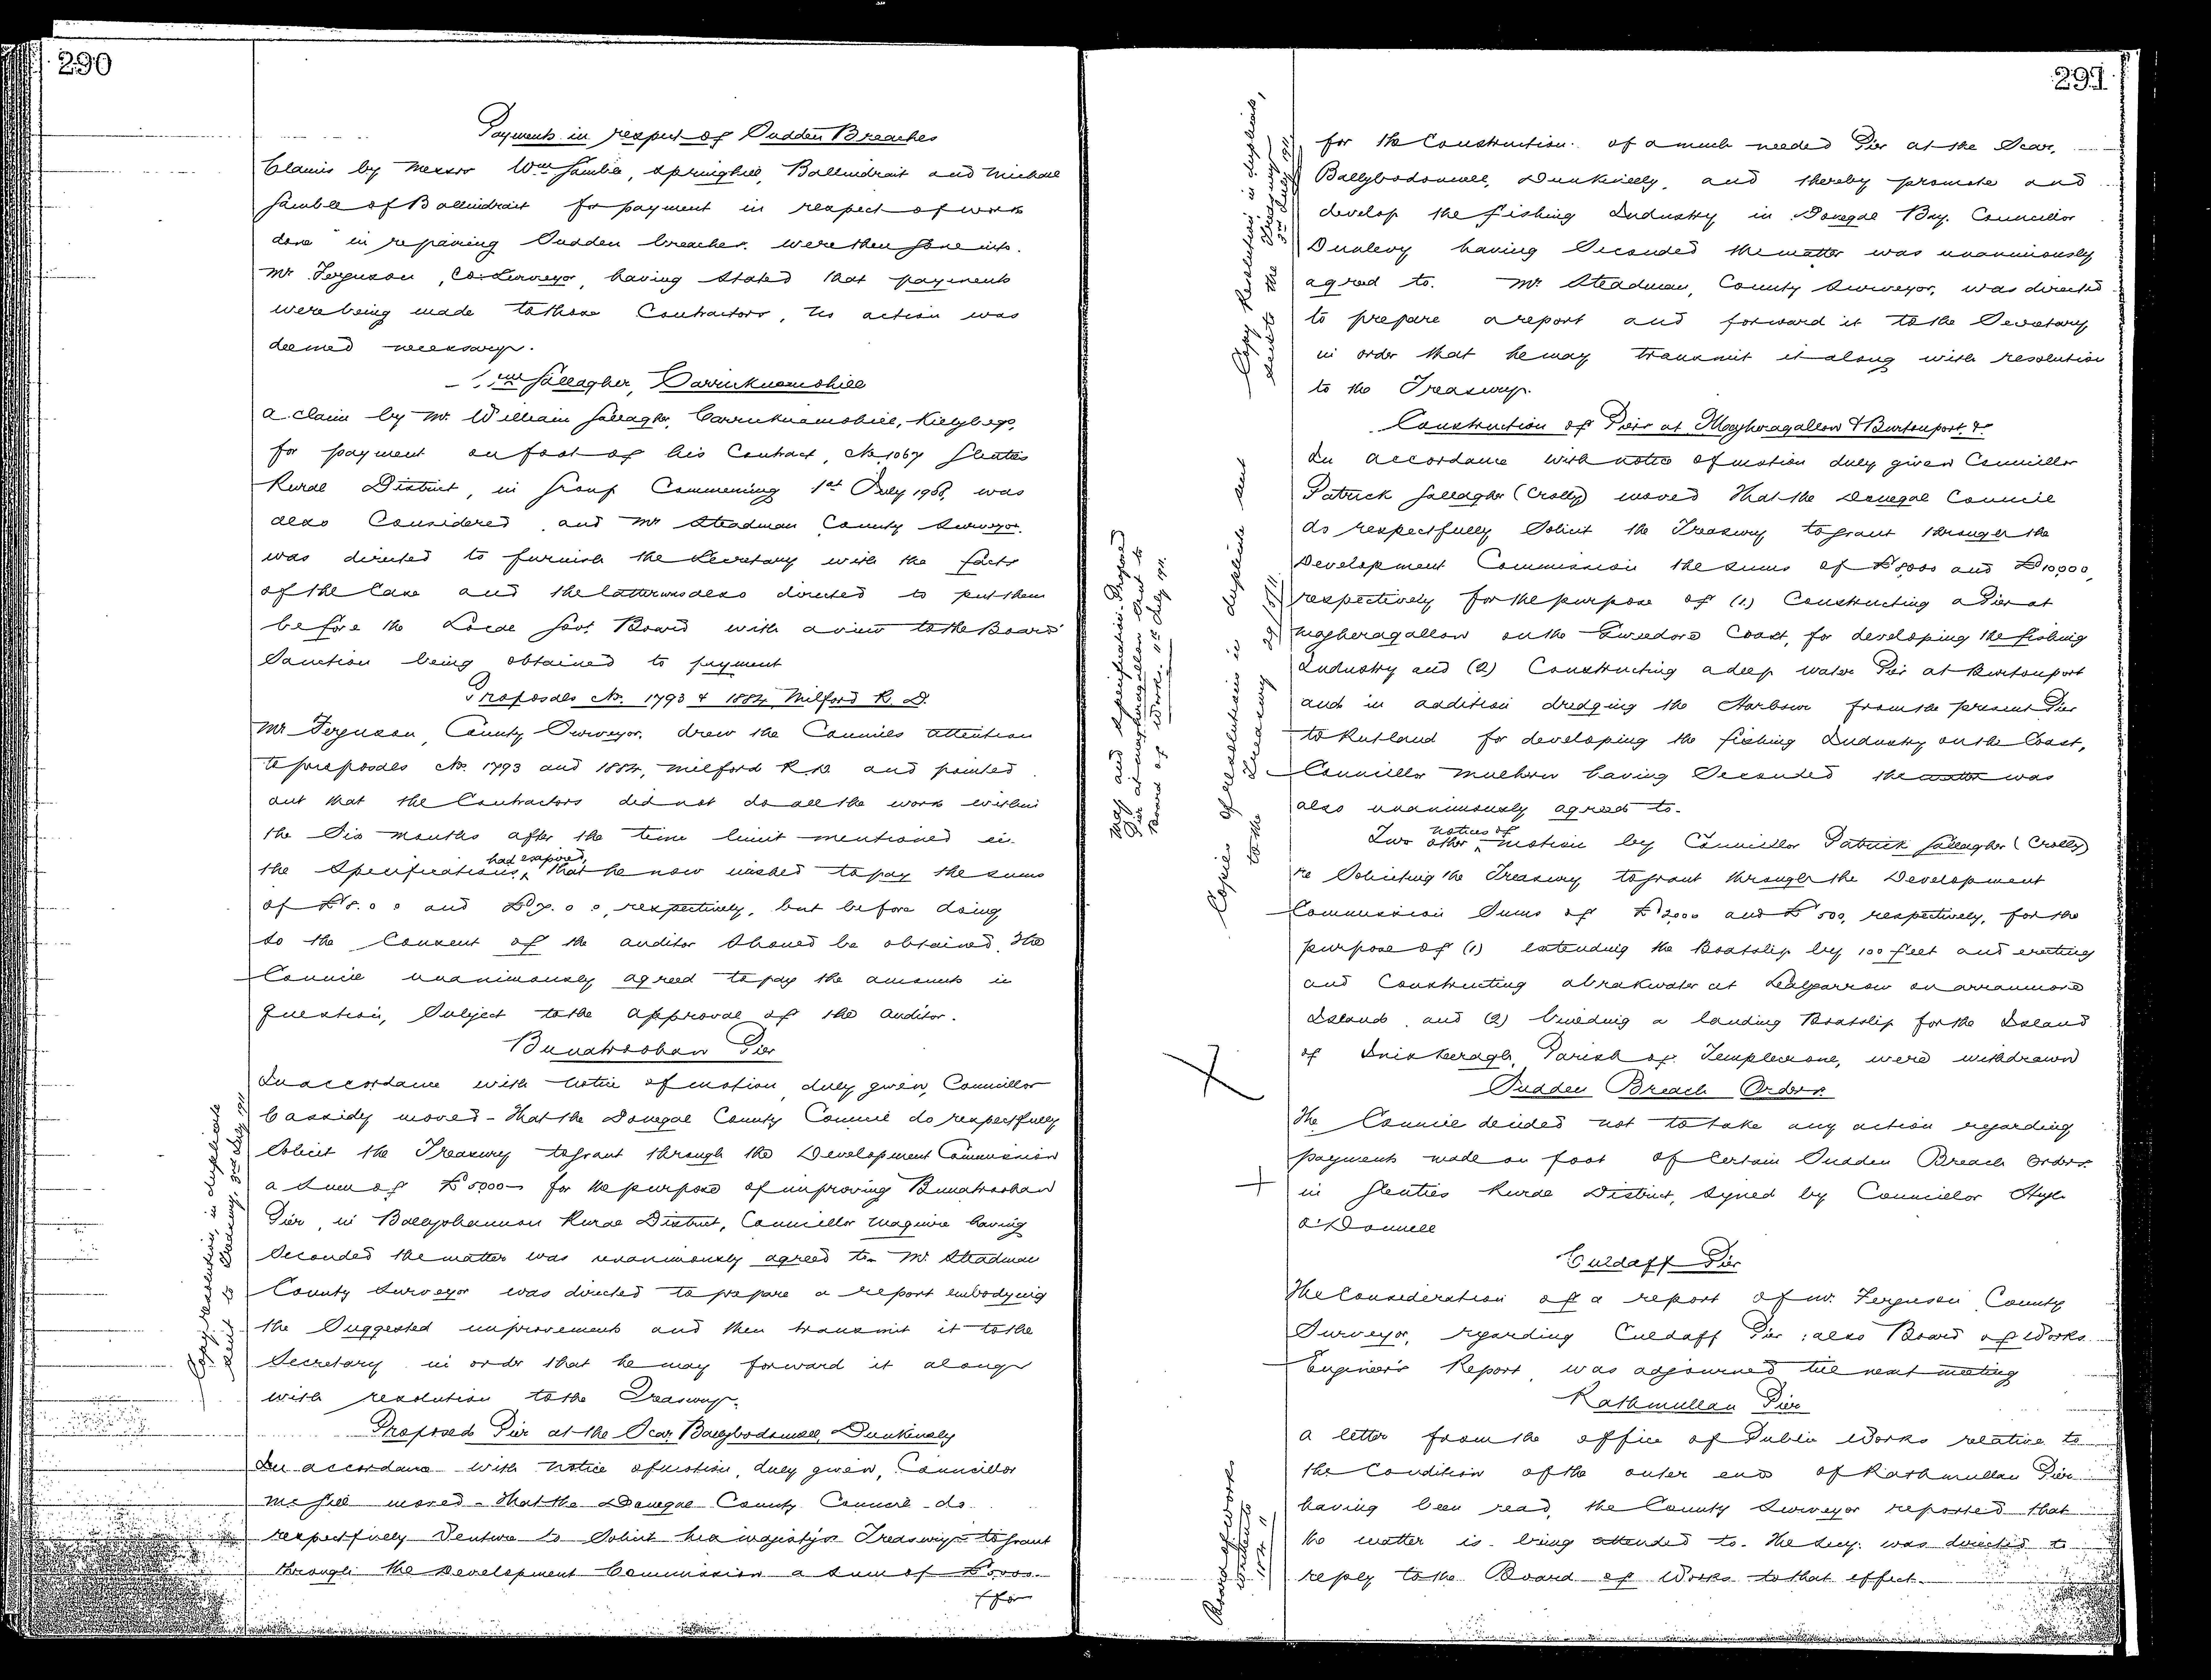 290
Payments in respect of Sudden Breaches
Claims by Messrs Wm Gamble, Springhill, Ballindrait and Michael
Gamble of Ballindrait for payment in respect of work
done in repairing Sudden breaches were then gone into.
Mr Ferguson, Co. Surveyor, having stated that payments
were being made to these Contractors, no action was
deemed necessary.
Wm Gallagher, Carricknamohill
A claim by Mr. William Gallagher, Carricknamohill, Killybegs,
for payment on foot of his Contract, No. 1067 Glenties
Rural District, in Group Commencing 1st July 1908, was
also Considered and Mr Steadman County Surveyor.
was directed to furnish the Secretary with the facts
of the Case and the latter was also directed to put them
before the Local Govt. Board with a view to the Board's
Sanction being obtained to payment
Proposals No. 1793 & 1884 Milford R. D.
Mr Ferguson, County Surveyor, drew the Councils attention
to proposals No. 1793 and 1884, Milford R.D. and pointed
out that the Contractors did not do all the work within
the Six months after the time limit mentioned in
the Specifications, had expired, that he now wished to pay the sums
of £8. 0 0 and £7. 0 0, respectively, but before doing
so the Consent of the auditor should be obtained. The
Council unanimously agreed to pay the amounts in
question, Subject to the approval of the Auditor.
Bunatroohan Pier
In accordance with notice of motion duly given, Councillor
Cassidy moved - That the Donegal County Council do respectfully
Solicit the Treasury to grant through the Development Commission
a sum of £5000 for the purpose of improving Bunatroohan
Pier, in Ballyshannon Rural District, Councillor Maguire having
Seconded the matter was unanimously agreed to. Mr. Steadman
County Surveyor was directed to prepare a report embodying
the Suggested improvements and then transmit it to the
Secretary in order that he may forward it along
with resolution to the Treasury.
Copy resolution, in duplicate
sent to Treasury. 3rd July 1911
Proposed Pier at the Scar, Ballybodonnell, Dunkineely
In accordance with notice of motion, duly given, Councillor
McGill moved - That the Donegal County Council do
respectfully venture to Solicit his majesty's Treasury to grant
through the Development Commission a sum of £5000
/for
291
for the Construction of a much needed Pier at the Scar,
Ballybodonnell, Dunkineely, and thereby promote and
develop the fishing Industry in Donegal Bay. Councillor
Dunlevy having Seconded the matter was unanimously
agreed to. Mr Steadman, County Surveyor, was directed
to prepare a report and forward it to the Secretary
in order that he may transmit it along with resolution
to the Treasury.
Copy Resolution in duplicate,
sent to the Treasury
3rd July 1911
Construction of Piers at Magheragallon & Burtonport &c
In accordance with notice of motion duly given Councillor
Patrick Gallagher (Crolly) moved That the Donegal Council
do respectfully Solicit the Treasury to grant through the
Development Commission the sums of £5000 and £10,000,
respectively for the purpose of (1.) Constructing a Pier at
Magheragallon on the Gweedore Coast, for developing the fishing
Industry and (2) Constructing a deep water Pier at Burtonport
and in addition dredging the Harbour from the present Pier
to Rutland for developing the fishing Industry on the Coast,
Councillor Mulhern having Seconded the matter was
also unanimously agreed to.
Copies of resolutions in duplicate sent
to the Treasury 29/5/11.
Map and Specification Proposed
Pier at Magheragallon Sent to
Board of Works. 11th July 1911.
Two other notices of motion by Councillor Patrick Gallagher (Crolly)
re Soliciting the Treasury to grant through the Development
Commission Sums of £2000 and £500, respectively, for the
purpose of (1) extending the Boatslip by 100 feet and erecting
and Constructing a breakwater at Leabgarrow on Arranmore
Island, and (2) building a landing Boatslip for the Island
of Inishkeeragh, Parish of Templecrone, were withdrawn
Sudden Breach Orders
The Council decided not to take any action regarding
payments made on foot of Certain Sudden Breach Orders
in Glenties Rural District, signed by Councillor Hugh
O'Donnell
Culdaff Pier
The Consideration of a report of Mr. Ferguson County
Surveyor, regarding Culdaff Pier; also Board of Works
Engineer's Report, was adjourned till next meeting
Rathmullan Pier
A letter from the office of Public Works relative to
the Condition of the outer end of Rathmullan Pier
having been read, the County Surveyor reported that
the matter is being attended to. The Secy. was directed to
reply to the Board of Works to that effect.
Board of Works
written to